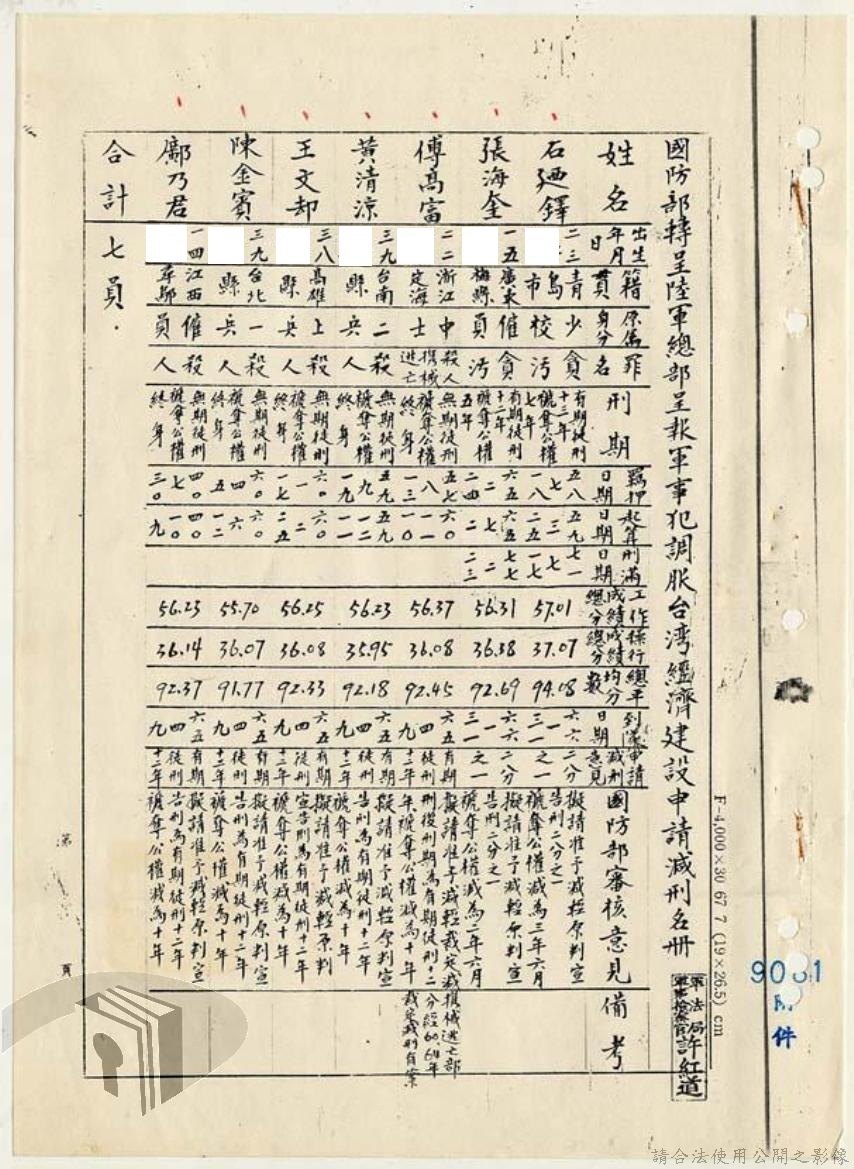 國防部轉呈陸軍總部呈報軍事犯調服台湾經濟建設申請減刑名册
姓名
出生年月日
籍貫
原屬身分
罪名
刑期
羈押日期
起算日期
刑滿日期
工作成績總分
操行成績總分
總平均分數
到隊日期
申請減刑意見
國防部審核意見
備考
石廼鐸
二三
青島市
少校
貪污
有期徒刑十三年
褫奪公權七年
五八 七 一八
五九 三 二五
七一 七 一七
57.01
37.07
94.08
六六 三 一
二分之一
擬請准予減輕原判宣告刑二分之一
褫奪公權減為三年六月
張海奎
一五
廣東梅縣
僱員
貪污
有期徒刑十二年
褫奪公權五年
六五 二 二四
六五 七 二
七七 二 二三
56.31
36.38
92.69
六六 三 一
二分之一
擬請准予減輕原判宣告刑二分之一
褫奪公權減為二年六月
傅高富
二二
浙江定海
中士
殺人携械逃亡
無期徒刑
褫奪公權終身
五七 八 一三
六〇 一一 一〇
56.37
36.08
92.45
六五 四 九
有期徒刑十二年
擬請准予減輕裁定減刑後刑期為有期徒刑十二年褫奪公權減為十年
携械逃亡部分經60.64年裁定減刑有案
黃清涼
三九
台南縣
二兵
殺人
無期徒刑
褫奪公權終身
五九 九 一九
五九 一一 一二
56.23
35.95
92.18
六五 四 九
有期徒刑十二年
擬請准予減輕原判宣告刑為有期徒刑十二年
褫奪公權減為十年
王文却
三八
高雄縣
上兵
殺人
無期徒刑
褫奪公權終身
六〇 一 一七
六〇 二 二五
56.25
36.08
92.33
六五 四 九
有期徒刑十二年
擬請准予減輕原判宣告刑為有期徒刑十二年
褫奪公權減為十年
陳金賓
三九
台北縣
一兵
殺人
無期徒刑
褫奪公權終身
六〇 四 五
六〇 六 一二
55.70
36.07
91.77
六五 四 九
有期徒刑十二年
擬請准予減輕原判宣告刑為有期徒刑十二年
褫奪公權減為十年
鄺乃君
一四
江西尋鄔
僱員
殺人
無期徒刑
褫奪公權終身
四〇 七 三〇
四〇 一〇 九
56.23
36.14
92.37
六五 四 九
有期徒刑十二年
擬請准予減輕原判宣告刑為有期徒刑十二年
褫奪公權減為十年
合計
七員.
第 頁
F-4,000×30 67 7 (19×26.5) cm
件
軍法局
軍事檢察官
許紅道
請合法使用公開之影像